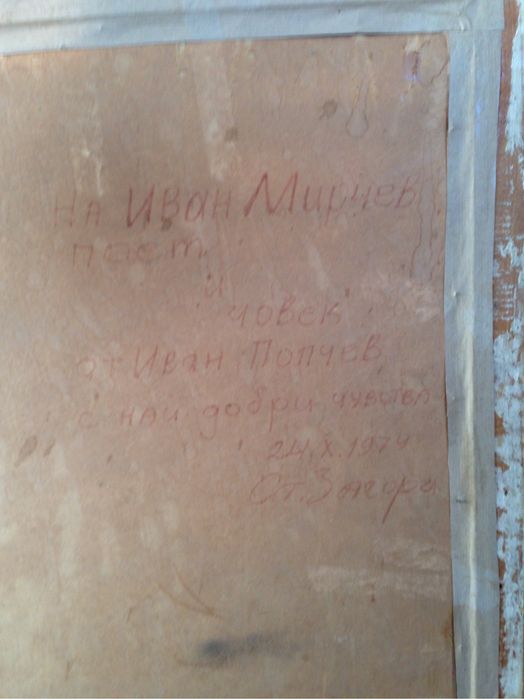 на Иван Мирчев
поет
и
човек
от Иван Попчев
с най добри чувства
24.X.1974
Ст. Загора